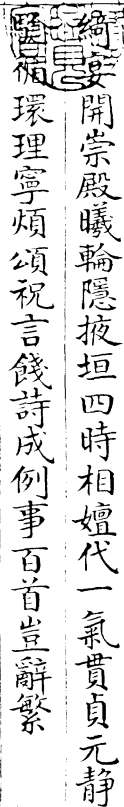 綺宴開崇殿曦輪隱掖垣四時相嬗代一氣貫貞元静
驗循環理寧煩頌祝言餞詩成例事百首豈辭繁